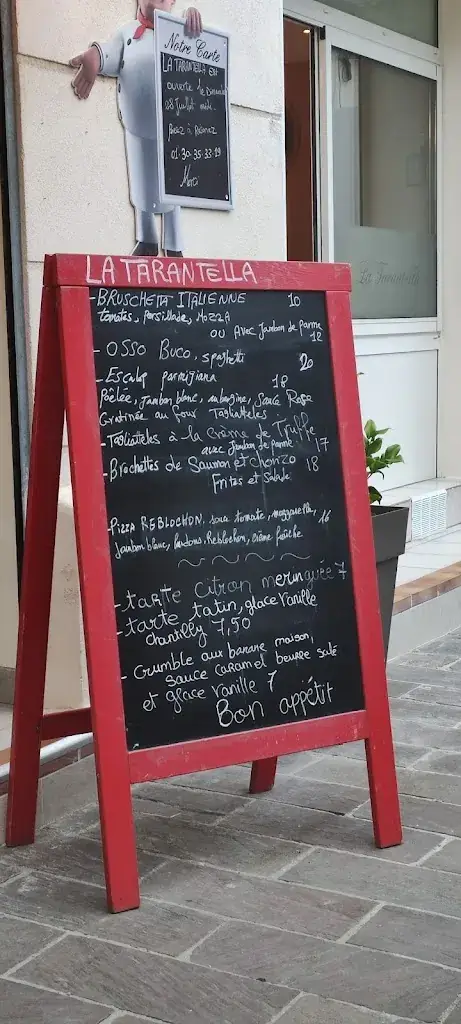 Notre Carte
LA TARANTELLA est
ouverte le Dimanche
28 Juillet midi.
Pensez à Réservez
01.30.35.33.19
Merci
La Tarantella
LA TARANTELLA
- BRUSCHETTA ITALIENNE 10
tomates, persillade, MOZZA
ou Avec Jambon de Parme
12
- OSSO Buco, spaghetti 20
- Escalop parmigiana 18
Poêlée, Jambon blanc, aubergine, Sauce Rose
Gratinée au four Tagliatelles
- Tagliatelles à la Crème de Truffe
avec Jambon de Parme 17
- Brochettes de Saumon et chorizo 18
Frites et Salade
- Pizza REBLOCHON. sauce tomate, mozzarella, 16
Jambon blanc, lardons, Reblochon, crème fraîche
- tarte citron meringuée 7
- tarte tatin, glace Vanille
chantilly 7,50
- Crumble aux banane maison,
sauce caramel beurre salé
et glace vanille 7
Bon appétit